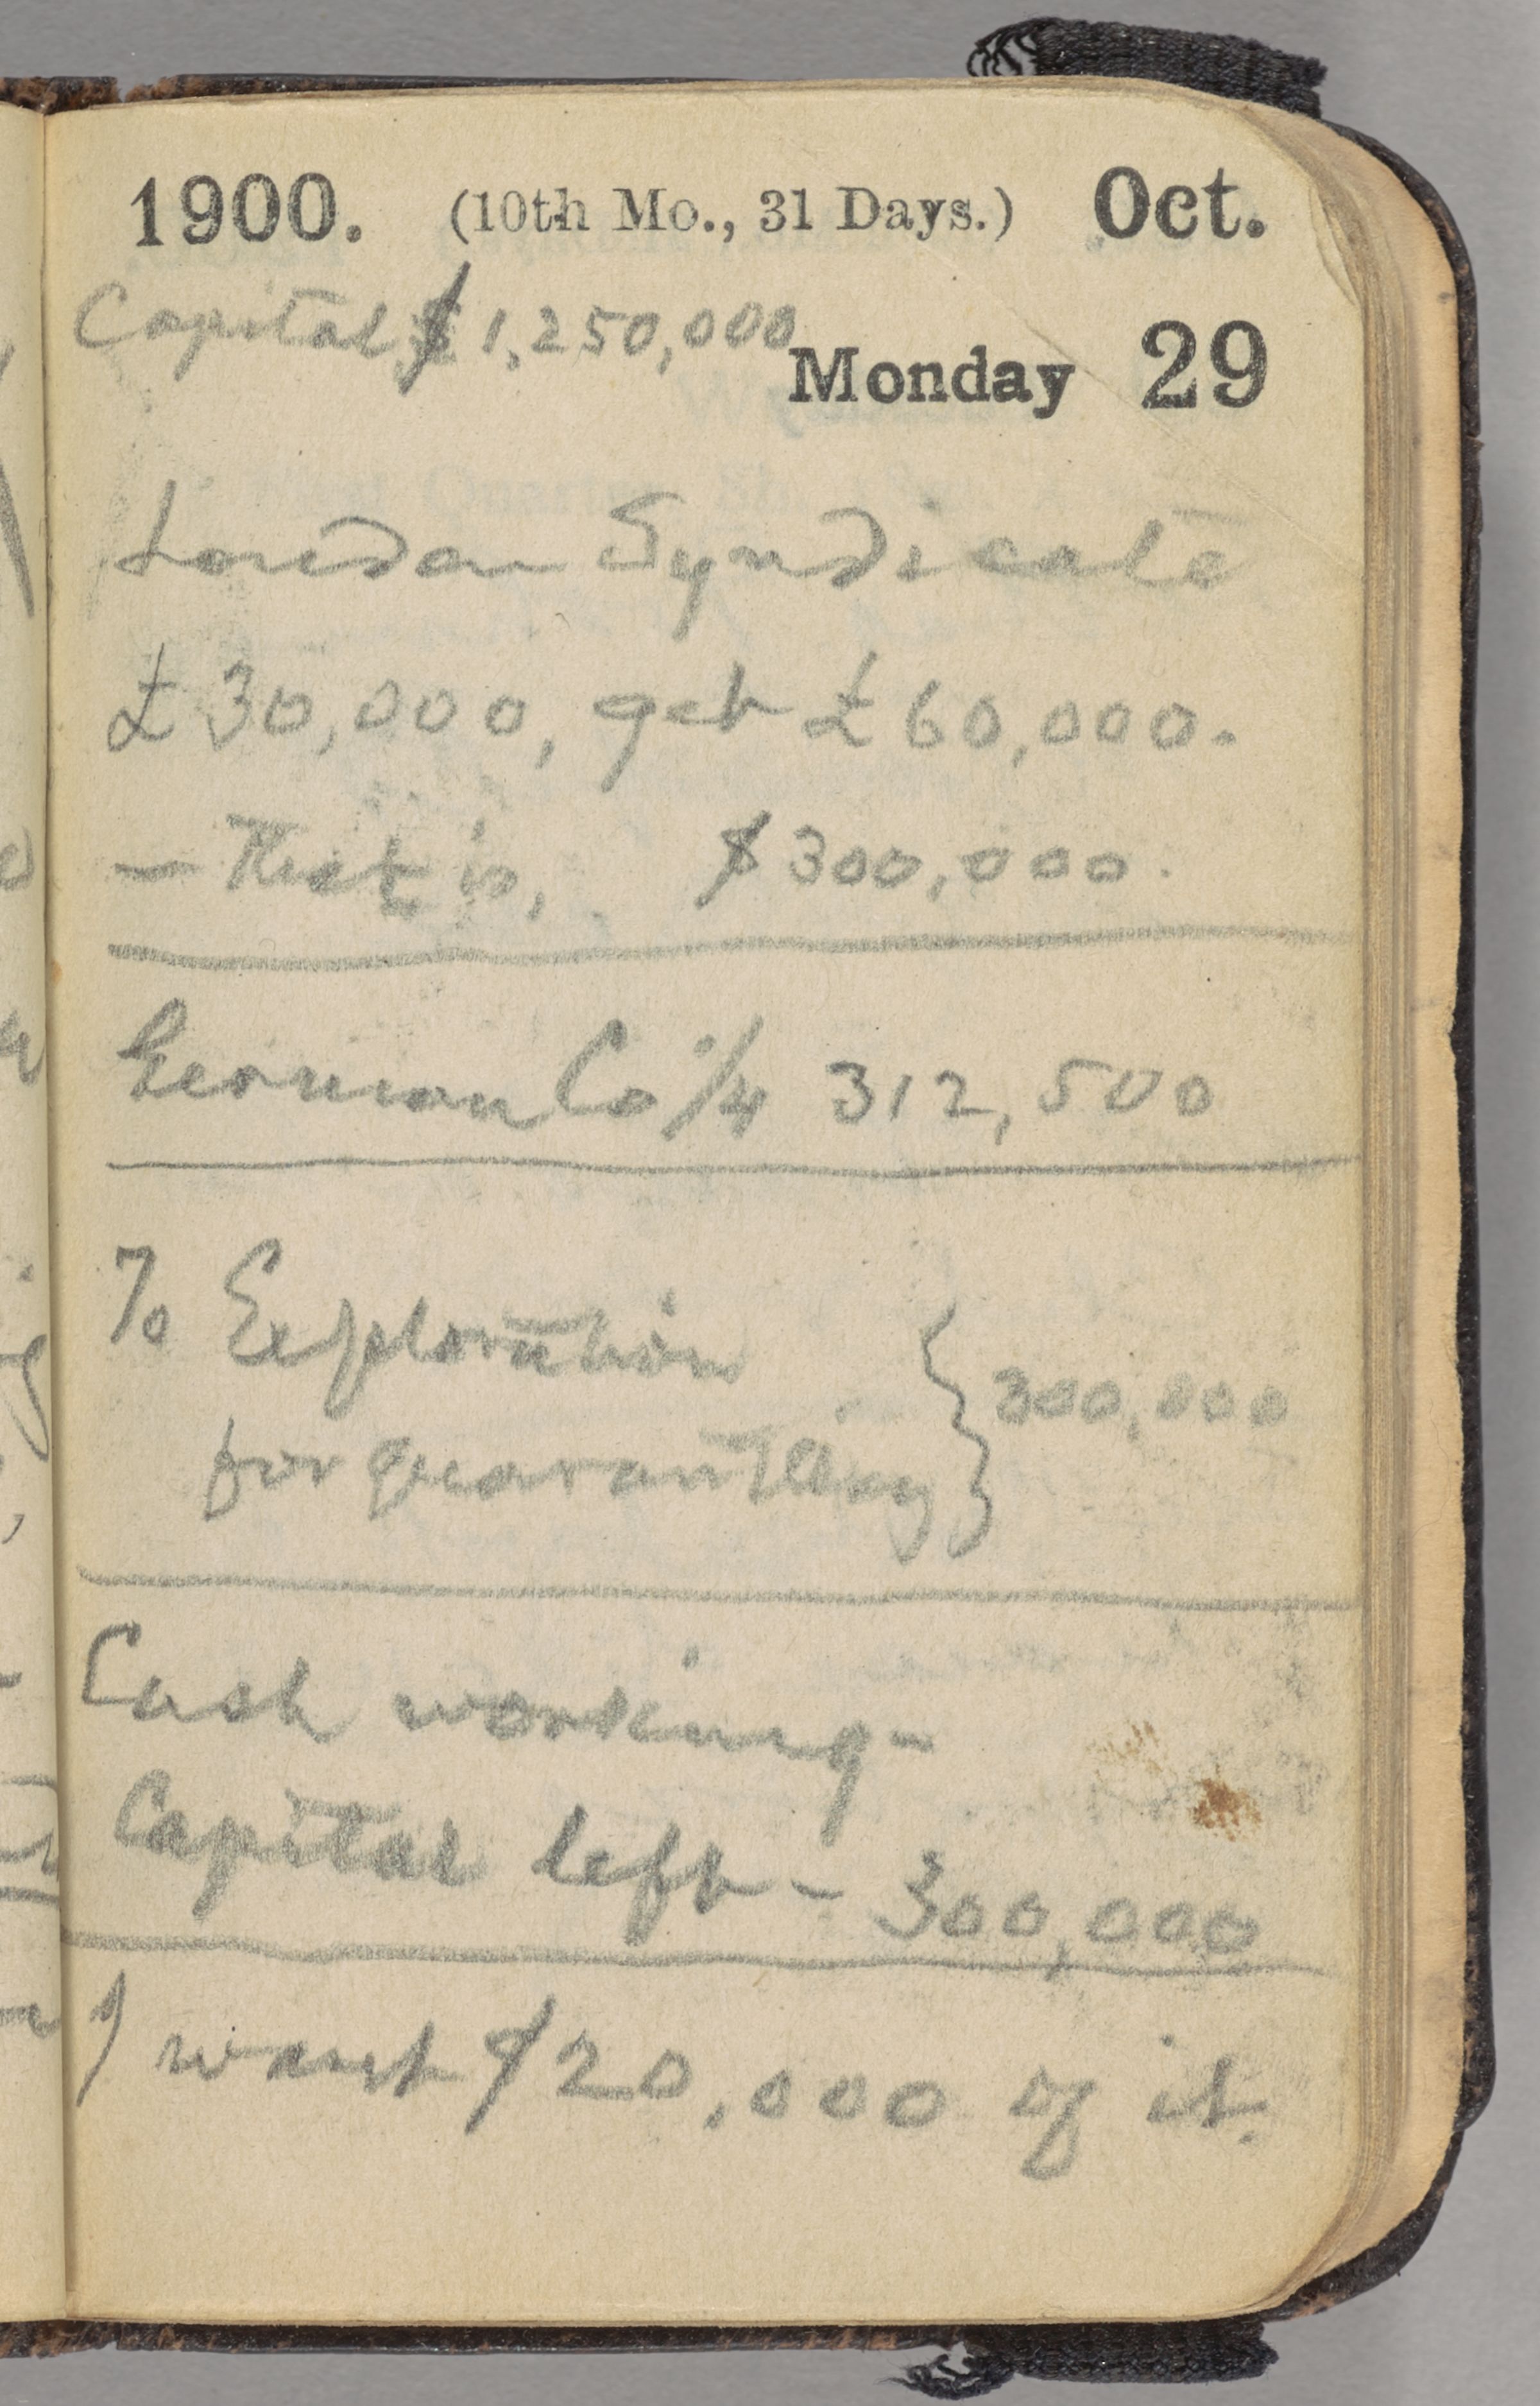 1900. (10th Mo., 31 Days.) Oct.
Capital $1,250,000
Monday 29
London Syndicate
£30,000, get £60,000.
— That is, $300,000.
German Co 1/4 312,500
To Exploration
for guaranteeing } 300,000
Cash working-
Capital left - 300,000
I want $20,000 of it.